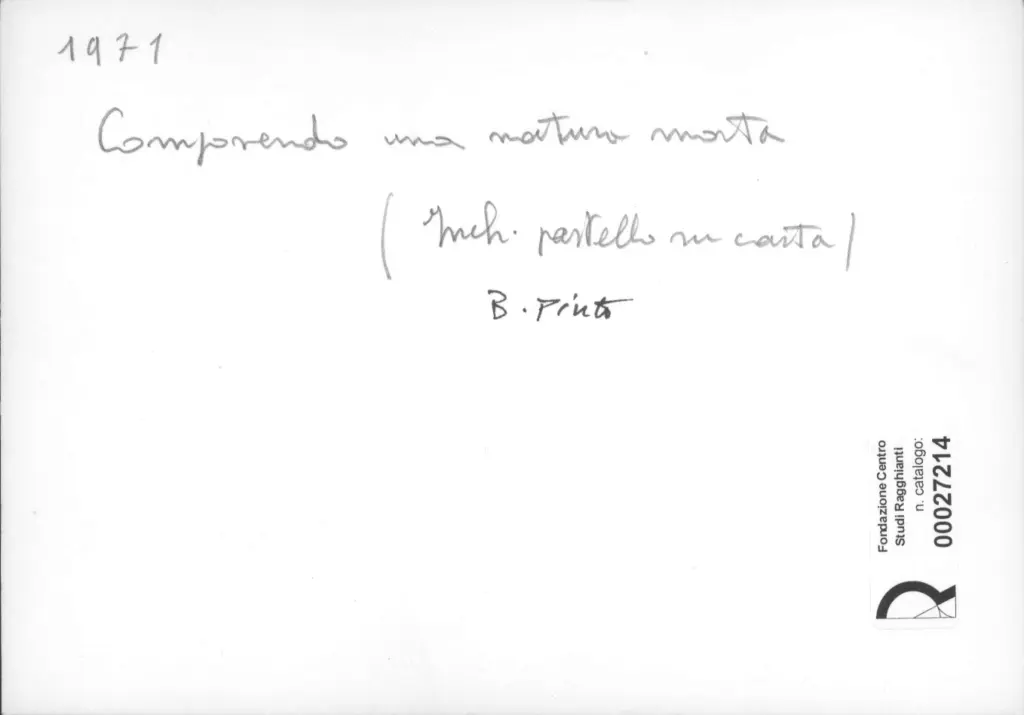 1971
Comprendo una natura morta
(Inch. pastello su carta)
B. Pinto
Fondazione Centro
Studi Ragghianti
n. catalogo:
00027214